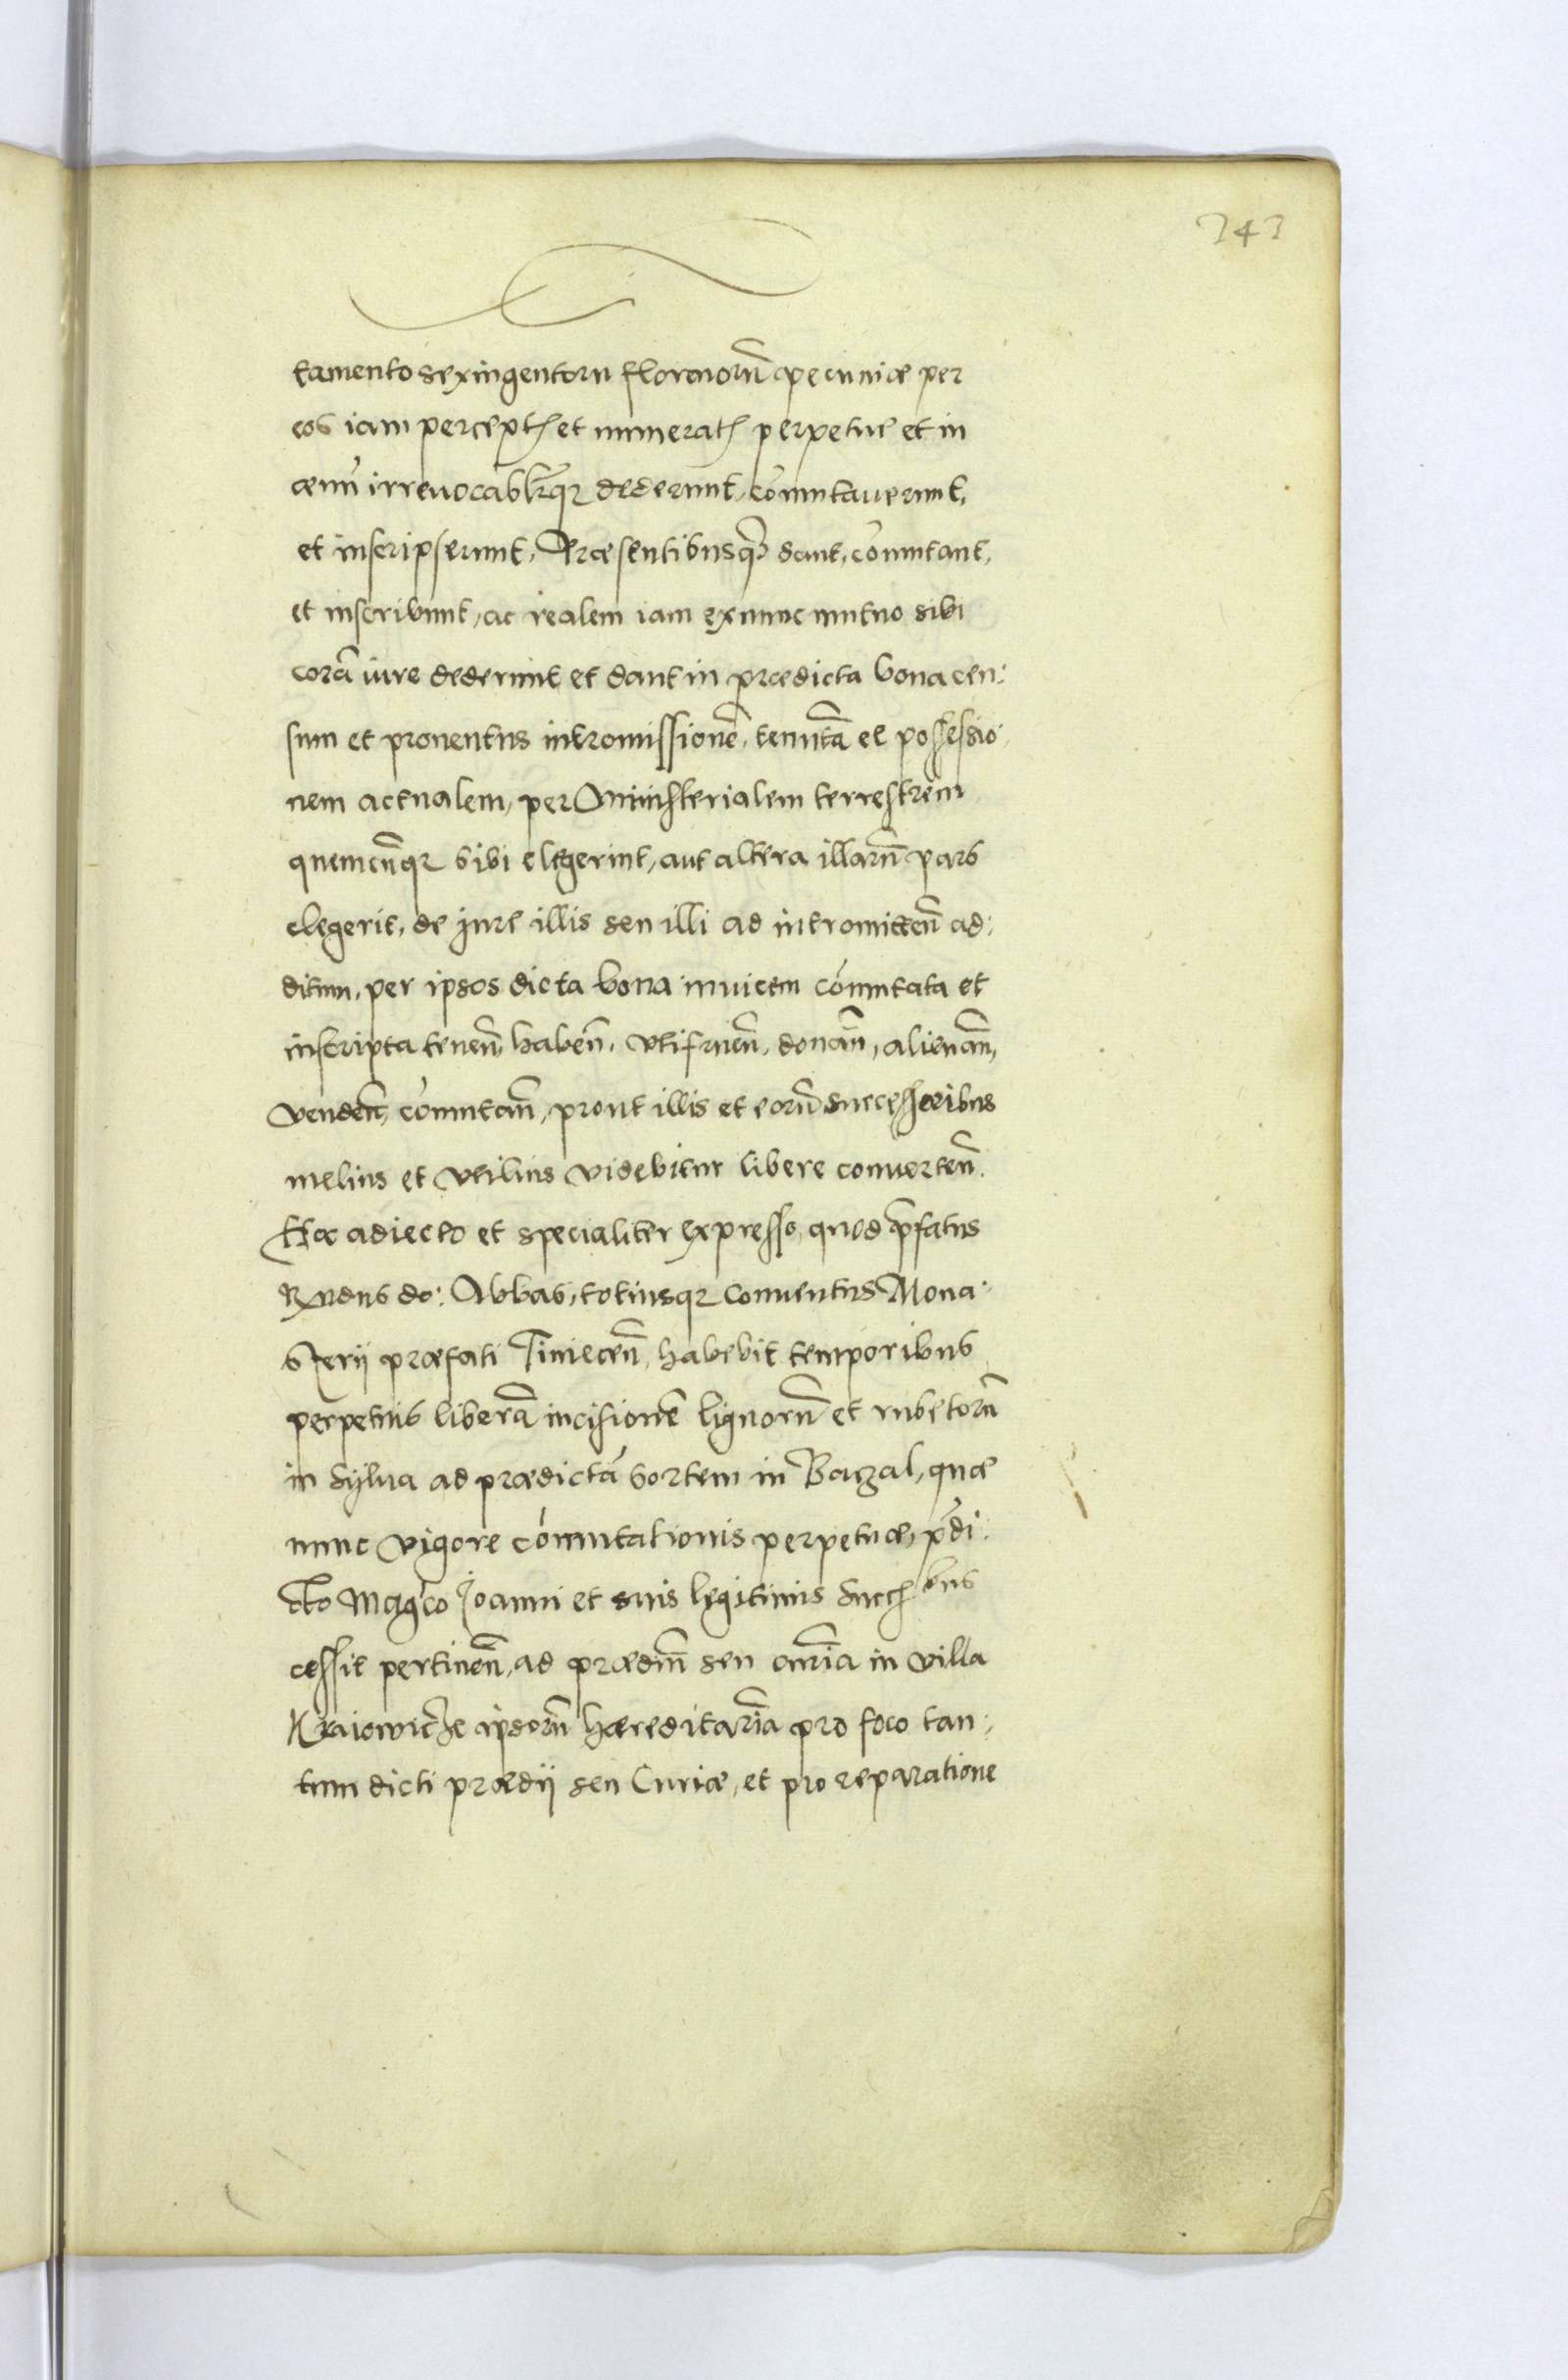 343
tamento sexingentoru florenorũ pecuniæ per
eos iam percept et numerat perpetue et in
æuũ irreuocabĺrq dederunt, cõmutauerunt,
et inscripserunt, Præsentibusq dant, cõmutant,
et inscribunt, ac realem iam ex nunc mutuo sibi
corã iure dederunt et dant in prædicta bona cen:
sum et prouentus intromissionẽ, tenutã et possessio:
nem actualem, per Ministerialem terrestrem
quemcũq sibi elegerint, aut altera illarũ pars
elegerit, de jure illis seu illi ad intromitteñ ad:
ditum, per ipsos dicta bona inuicem cõmutata et
inscripta teneñ, habeñ, vtifrueñ, donañ, alienañ,
vendeñ, cõmutañ, prout illis et eorũ successoribus
melius et vtilius videbitur libere conuerteñ.
Hoc adiecto et specialiter expresso, quod p̃fatus
Rndus do: Abbas, totiusq conuentus Mona:
sterij præfati Tineceñ, habebit temporibus
perpetuis liberã incisionẽ lignorũ et rubetorũ
in sylua ad prædictã sortem in Bączal, quæ
nunc vigore cõmutationis perpetuæ, p̃di:
cto Magco Joanni et suis legitimis succbus
cessit pertineñ, ad prædiũ seu curiã in villa
Kraiowicze ipsorũ hæreditariã pro foco tan:
tum dicti prædij seu Curiæ, et pro reparatione